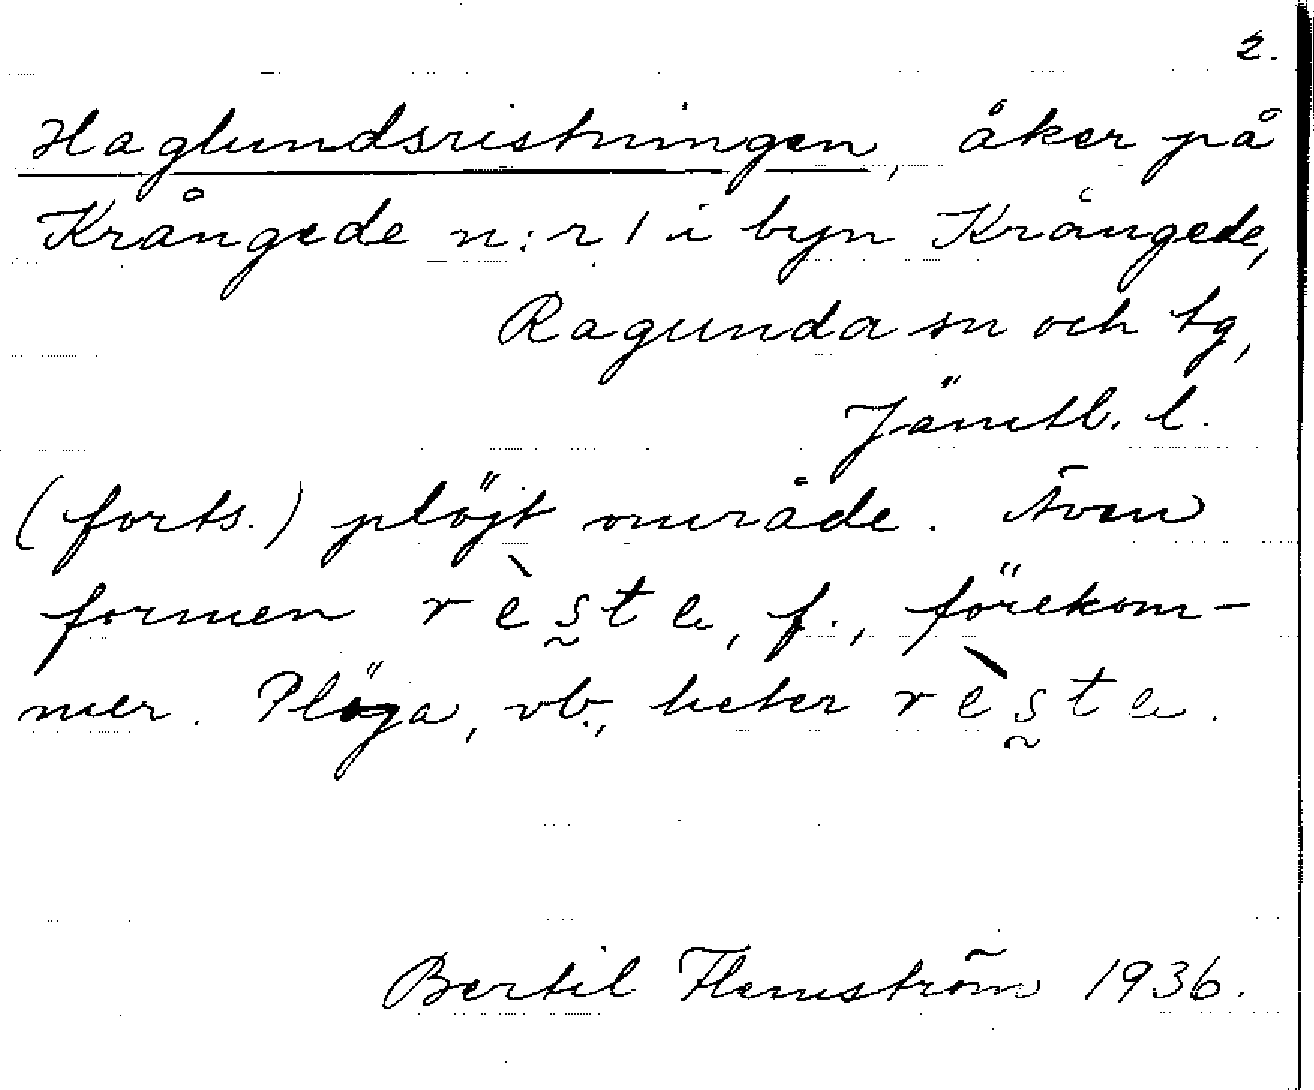 2.
Haglundsristningen, åker på
Krångede n:r 1 i byn Krångede,
Ragunda sn och tg,
Jämtl. l.
(forts.) plöjt område. Även
formen rèste, f., förekom-
mer. Plöga, vb., heter rèste.
Bertil Flemström 1936.